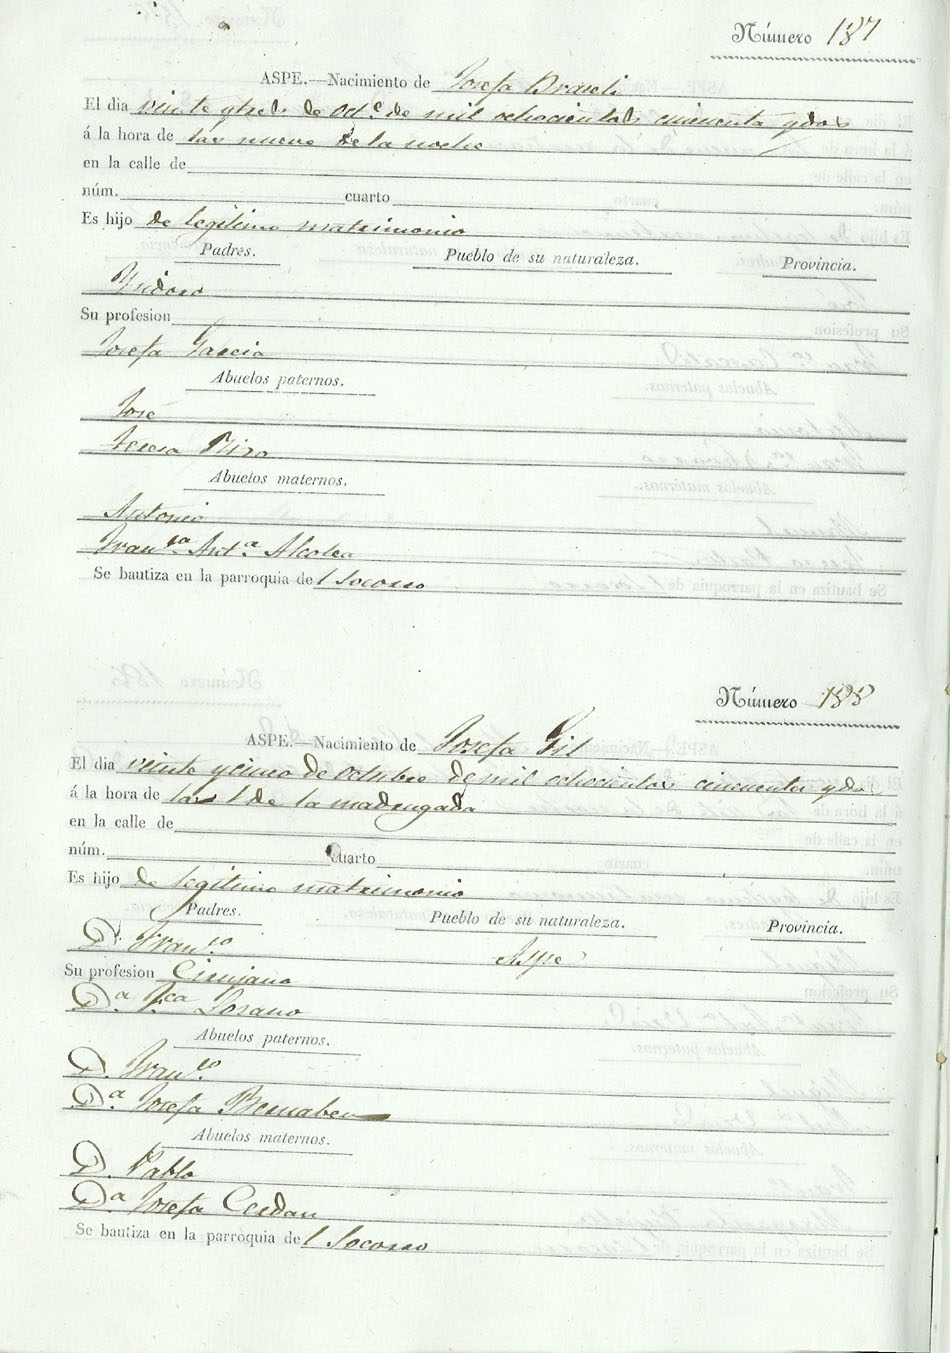 Número 187
ASPE.—Nacimiento de Josefa
El dia veinte y tres de Oct.e de mil ochocientos cincuenta y dos
á la hora de las nueve de la noche
en la calle de
núm. cuarto
Es hijo de legitimo matrimonio
Padres. Pueblo de su naturaleza. Provincia.
Ysidoro
Su profesion
Josefa Garcia
Abuelos paternos.
José
Teresa
Abuelos maternos.
Antonio
Fran.ca Ant.a Alcolea
Se bautiza en la parroquia del Socorro
Número 188
ASPE.—Nacimiento de Josefa Gil
El dia veinte y cinco de Octubre de mil ochocientos cincuenta y dos
á la hora de las 1 de la madrugada
en la calle de
núm. cuarto
Es hijo de legitimo matrimonio
Padres. Pueblo de su naturaleza. Provincia.
D. Fran.co Aspe
Su profesion Cirujano
D.a F.ca Lozano
Abuelos paternos.
D. Fran.co
D.a Josefa Bernabeu
Abuelos maternos.
D. Pablo
D.a Josefa Cerdan
Se bautiza en la parroquia del Socorro